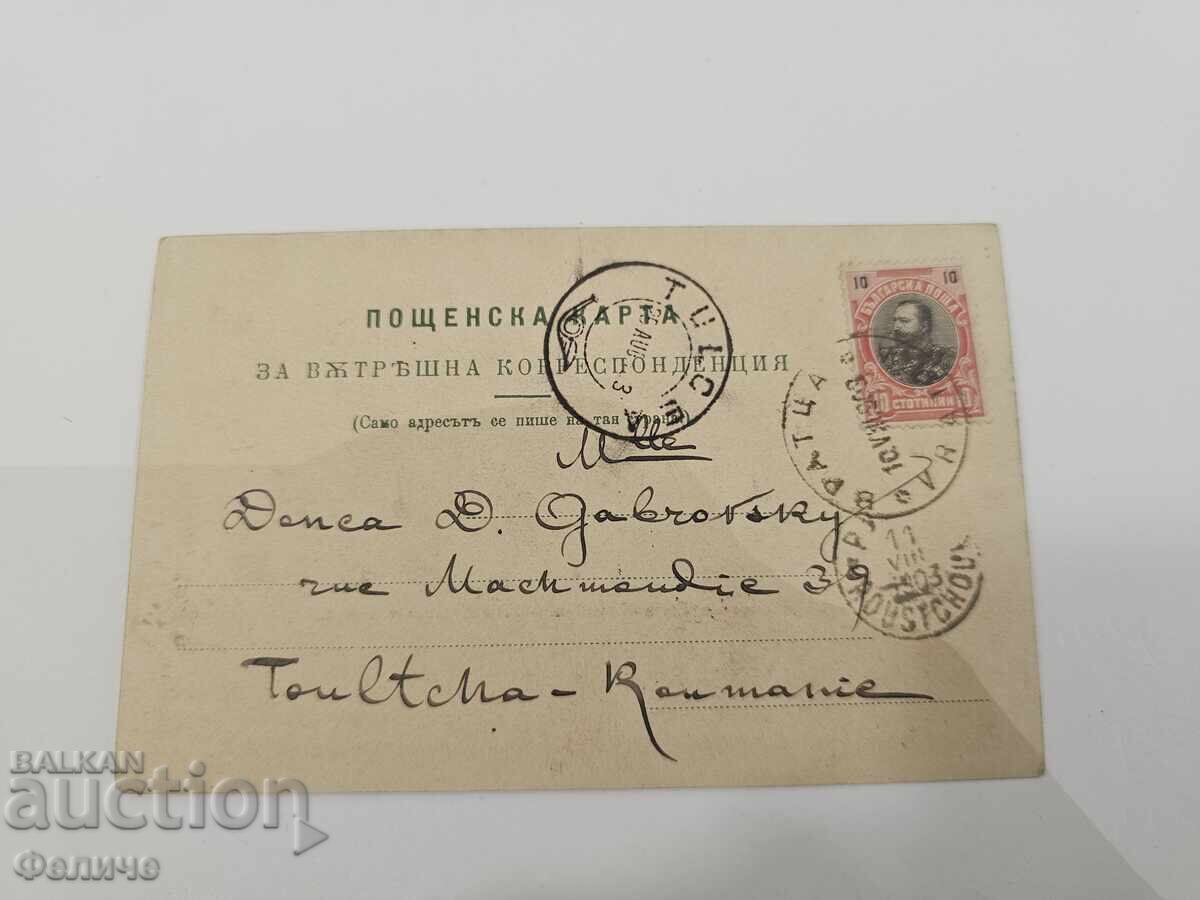 ПОЩЕНСКА КАРТА
ЗА ВѪТРѢШНА КОРРЕСПОНДЕНЦИЯ
(Само адресътъ се пише на тая страна)
TULCEA
AUG 3
10 10
БЪЛГАРСКА ПОЩА
10 СТОТИНКИ 10
ВРАТЦА
VRATZA
11
VIII
1903
ROUSTCHOUK
Mlle
Donca D. Gabrovsky
rue Mackmoudie 39
Toultcha - Roumanie
BALKAN
auction
Феличе